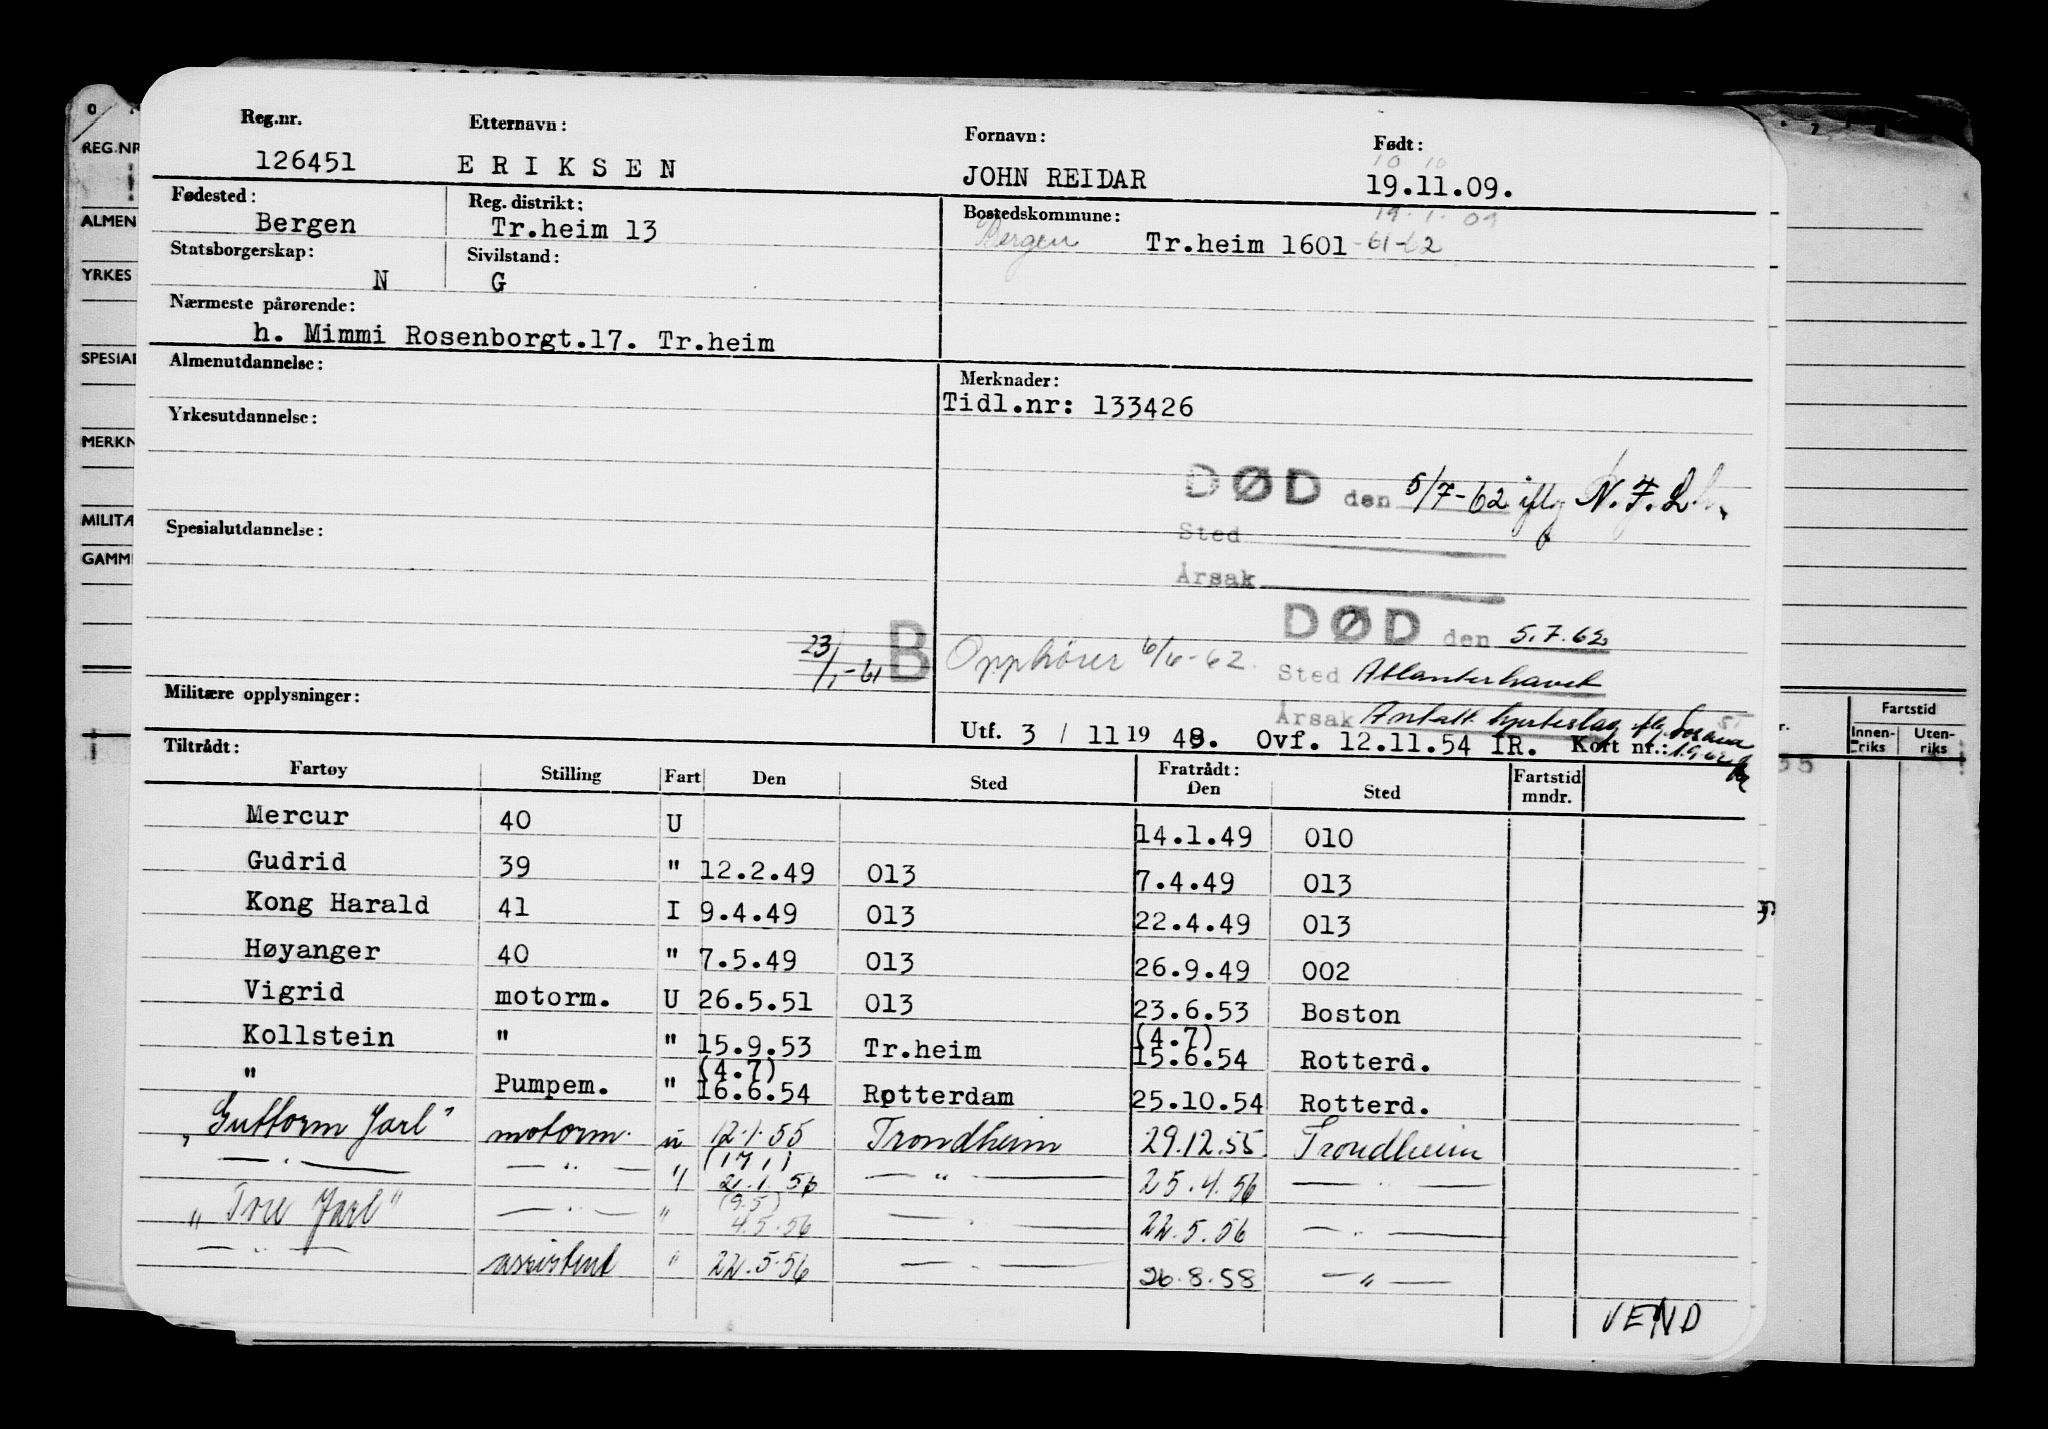 Reg.nr. Etternavn: Fornavn: Født:
10 10
126451 ERIKSEN JOHN REIDAR 19.11.09.
Fødested: Reg. distrikt: Bostedskommune: 19.1.09
Bergen Tr.heim 13 Bergen Tr.heim 1601-61-62
Statsborgerskap: Sivilstand:
N G
Nærmeste pårørende:
h. Mimmi Rosenborgt.17. Tr.heim
Almenutdannelse: Merknader:
Tidl.nr: 133426
Yrkesutdannelse:
DØD den 5/7-62 iflg N.F.L.
Sted
Spesialutdannelse:
Årsak
DØD den 5.7.62
23/1-61 B Opphører 6/6-62. Sted Atlanterhavet
Militære opplysninger: Årsak Antatt hjerteslag iflg
Utf. 3 / 11 19 48. Ovf. 12.11.54 IR. Kort nr.:
Tiltrådt: Fratrådt:
Fartøy Stilling Fart Den Sted Den Sted Fartstid mndr.
Mercur 40 U 14.1.49 010
Gudrid 39 " 12.2.49 013 7.4.49 013
Kong Harald 41 I 9.4.49 013 22.4.49 013
Høyanger 40 " 7.5.49 013 26.9.49 002
Vigrid motorm. U 26.5.51 013 23.6.53 Boston
Kollstein " " 15.9.53 Tr.heim (4.7) 15.6.54 Rotterd.
" Pumpem. " (4.7) 16.6.54 Rotterdam 25.10.54 Rotterd.
"Guttorm Jarl" motorm. u 12.1.55 Trondheim 29.12.55 Trondheim
— " — — " — " (17 1) 21.1.56 — " — 25.4.56 — " —
"Tore Jarl" — " — " (9.5) 4.5.56 — " — 22.5.56 — " —
— " — assistent " 22.5.56 — " — 26.8.58 — " —
VEND
REG.NR
ALMEN
YRKES
SPESIAL
MERKN
MILITÆ
GAMM
Fartstid
Innenriks Utenriks